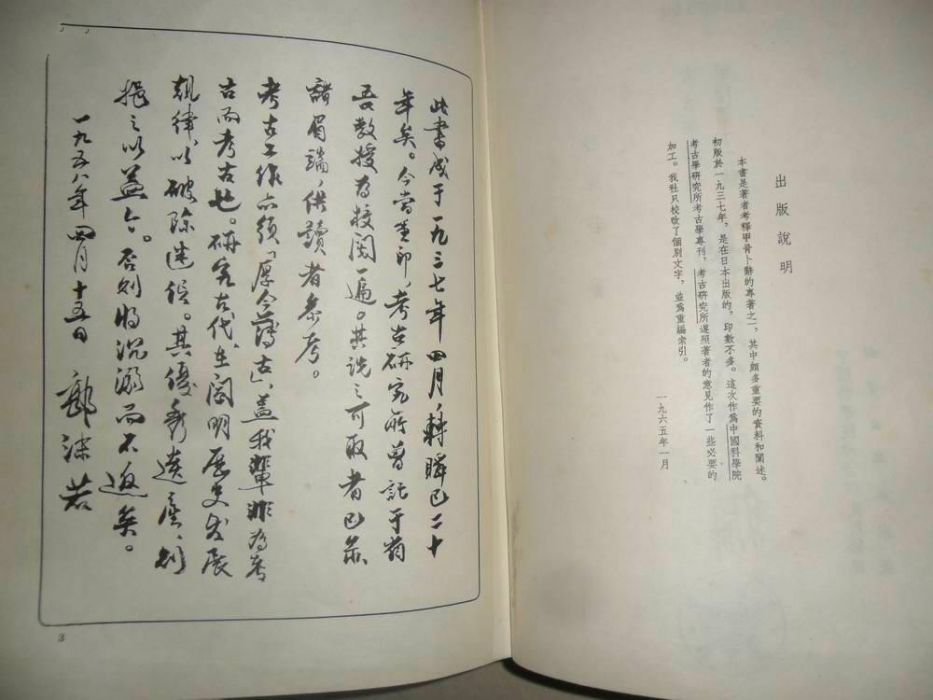 出版說明
本書是著者考釋甲骨卜辭的專著之一，其中頗多重要的資料和闡述。
初版於一九三七年，是在日本出版的，印數不多。這次作爲中國科學院
考古學研究所考古學專刊，考古研究所遵照著者的意見作了一些必要的
加工。我社只校改了個別文字，並爲重編索引。
一九六五年一月
此書成于一九三七年四月，轉瞬已二十
年矣。今當重印，考古研究所曾託于省
吾教授为校閱一遍。其説之可取者已
諸眉端，供讀者参考。
考古工作亦須「厚今薄古」，蓋我輩非为考
古而考古也。研究古代，在阐明歷史发展
規律，以破除迷信。其優秀遺產，則
之以益今。否則將沉溺而不返矣。
一九五八年四月十五日 郭沫若
3